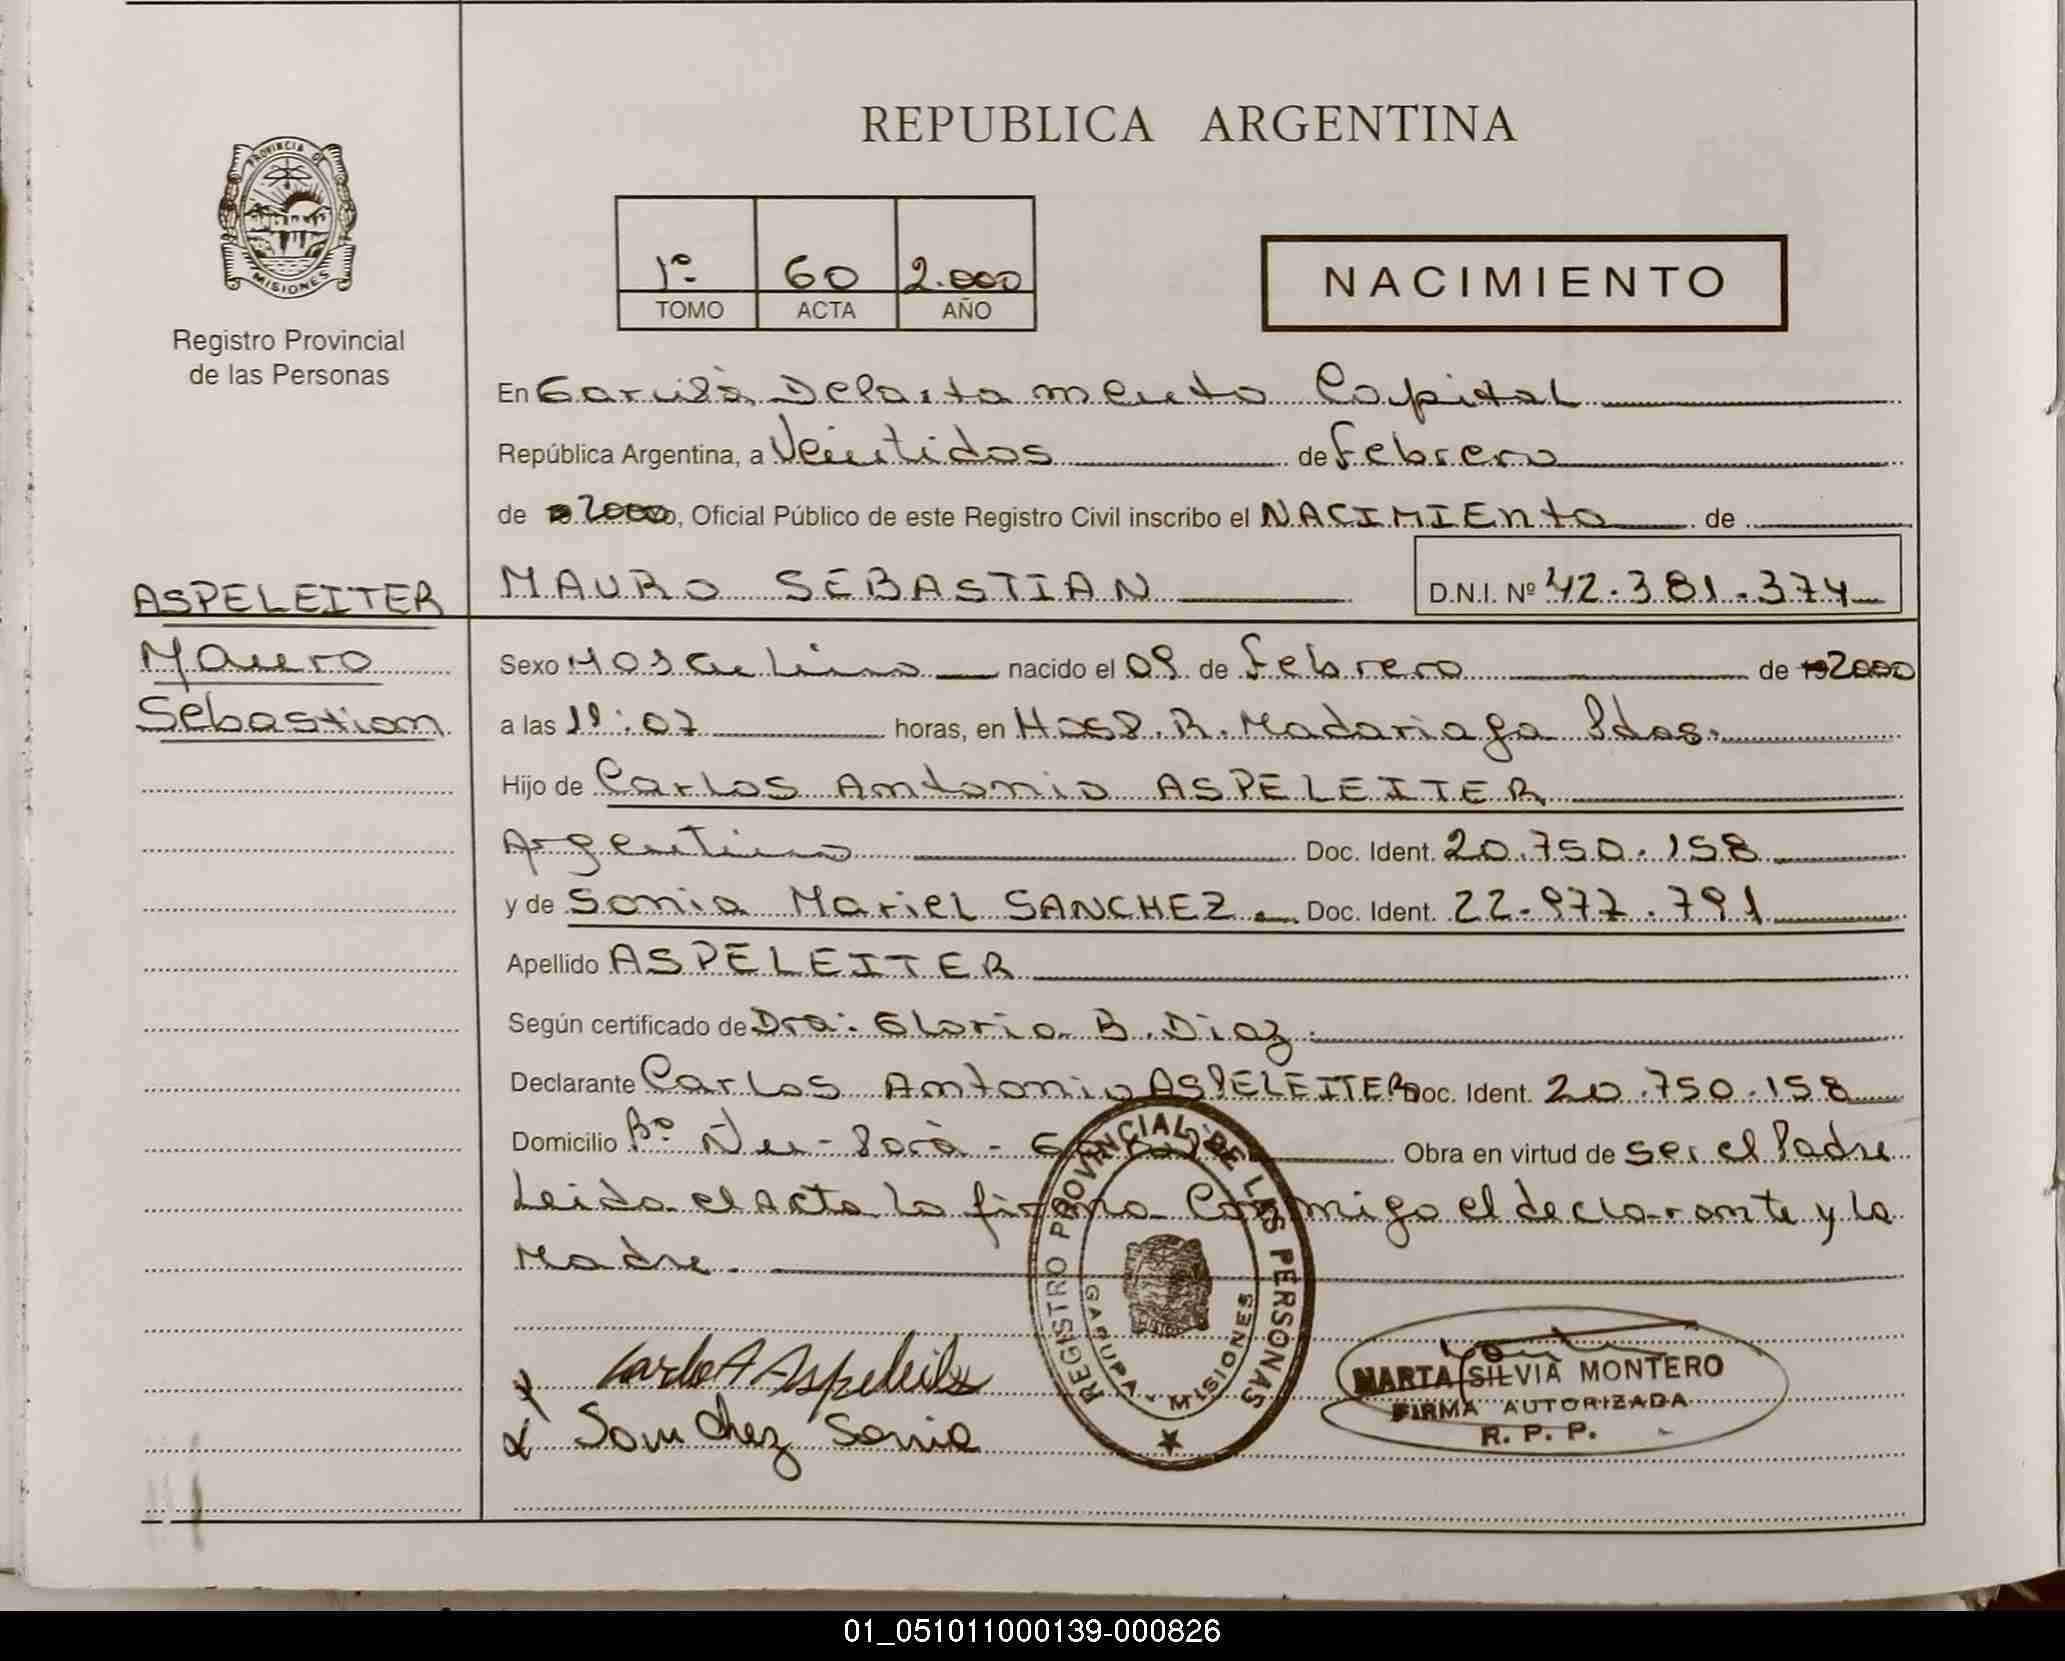 REPUBLICA ARGENTINA
PROVINCIA DE
MISIONES
Registro Provincial
de las Personas
1º 60 2.000
TOMO ACTA AÑO
NACIMIENTO
En Garupá, Departamento Capital
República Argentina, a Veintidos de Febrero
de 2000, Oficial Público de este Registro Civil inscribo el NACIMIENTO de
ASPELEITER
Mauro
Sebastian
MAURO SEBASTIAN D.N.I. Nº 42.381.374
Sexo Masculino nacido el 09 de Febrero de 192000
a las 11:07 horas, en Hosp. R. Madariaga Pdas.
Hijo de Carlos Antonio ASPELEITER
Argentino Doc. Ident. 20.750.158
y de Sonia Mariel SANCHEZ Doc. Ident. 22.977.791
Apellido ASPELEITER
Según certificado de Dra. Gloria B. Diaz.
Declarante Carlos Antonio ASPELEITER Doc. Ident. 20.750.158
Domicilio Bº Ñu-Porá - Garupá Obra en virtud de ser el Padre
Leida el acta la firma Conmigo el declarante y la
Madre.
Carlos A Aspeleiter
Sanchez Sonia
REGISTRO PROVINCIAL DE LAS PERSONAS
GARUPA - MISIONES
MARTA SILVIA MONTERO
FIRMA AUTORIZADA
R. P. P.
01_051011000139-000826